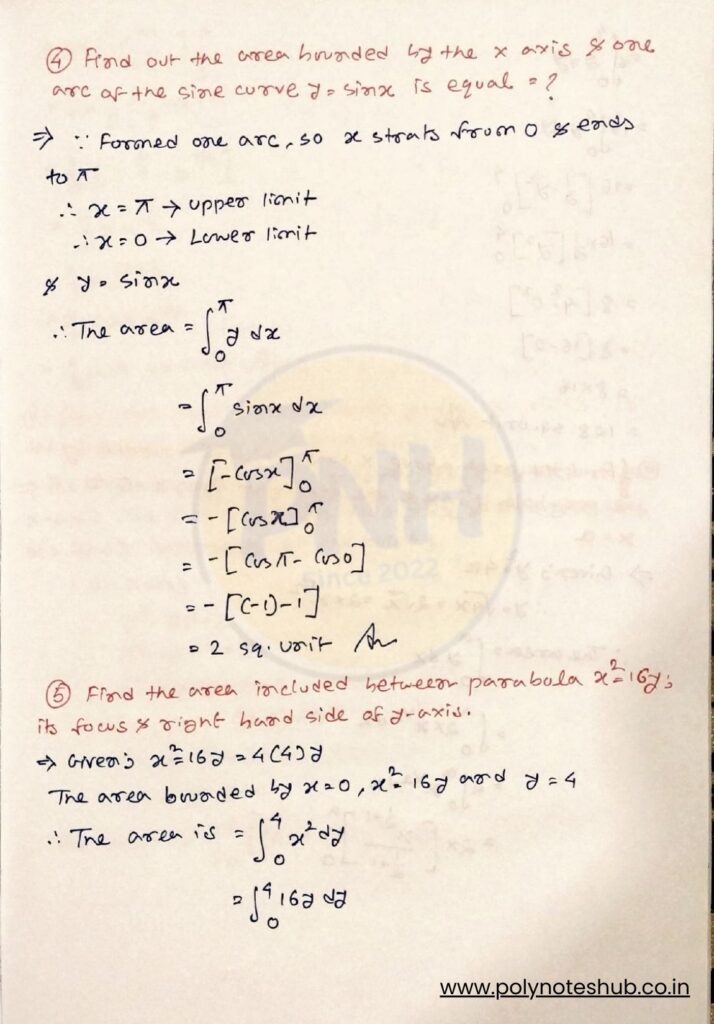 ④ Find out the area bounded by the x axis & one
arc of the sine curve y = sinx is equal = ?
⇒ ∵ Formed one arc, so x strats from 0 & ends
to π
∴ x = π → upper limit
∴ x = 0 → Lower limit
& y = sinx
∴ The area = ∫₀^π y dx
= ∫₀^π sinx dx
= [-cosx]₀^π
= -[cosx]₀^π
= -[cosπ - cos0]
= -[(-1)-1]
= 2 sq. unit An
⑤ Find the area included between parabola x² = 16y;
its focus & right hand side of y-axis.
⇒ Given; x² = 16y = 4(4)y
The area bounded by x = 0, x² = 16y and y = 4
∴ The area is = ∫₀⁴ x² dy
= ∫₀⁴ 16y dy
PNH
Since 2022
www.polynoteshub.co.in